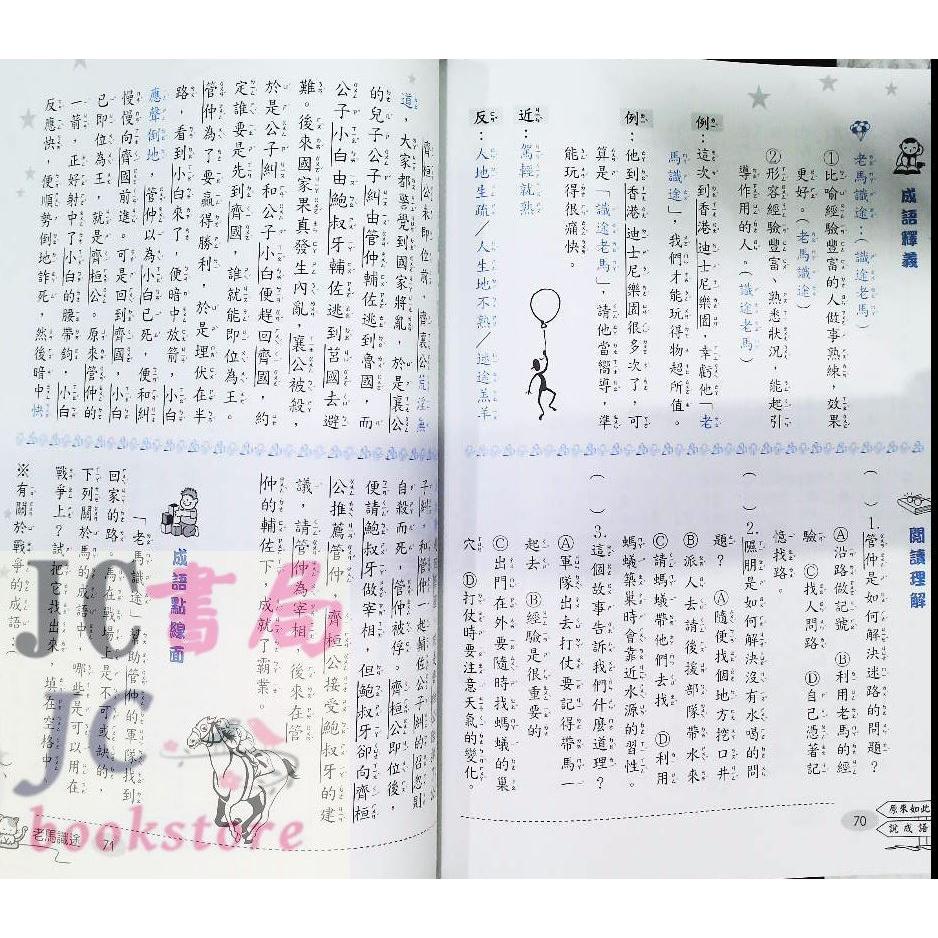 成語釋義
老馬識途:(識途老馬)
①比喻經驗豐富的人做事熟練,效果
更好。(老馬識途)
②形容經驗豐富、熟悉狀況,能起引
導作用的人。(識途老馬)
例:這次到香港迪士尼樂園,幸虧他「老
馬識途」,我們才能玩得物超所值。
例:他到香港迪士尼樂園很多次了,可
算是「識途老馬」,請他當嚮導,準
能玩得很痛快。
近:駕輕就熟
反:人地生疏/人生地不熟/迷途羔羊
閱讀理解
( )1.管仲是如何解決迷路的問題?
Ⓐ沿路做記號 Ⓑ利用老馬的經
驗 Ⓒ找人問路 Ⓓ自己憑著記
憶找路。
( )2.隰朋是如何解決沒有水喝的問
題? Ⓐ隨便找個地方挖口井
Ⓑ派人去請後後部隊帶水來
Ⓒ請螞蟻帶他們去找 Ⓓ利用
螞蟻築巢時會靠近水源的習性。
( )3.這個故事告訴我們什麼道理?
Ⓐ軍隊出去打仗要記得帶馬一
起去 Ⓑ經驗是很重要的
Ⓒ出門在外要隨時找螞蟻的巢
穴 Ⓓ打仗時要注意天氣的變化。
70
原來如此
說成語
齊桓公未即位前,齊襄公荒淫無
道,大家都警覺到國家將亂,於是襄公
的兒子公子糾由管仲輔佐逃到魯國,而
公子小白由鮑叔牙輔佐逃到莒國去避
難。後來國家果真發生內亂,襄公被殺,
於是公子糾和公子小白便趕回齊國,約
定誰要是先到齊國,誰就能即位為王。
管仲為了要贏得勝利,於是埋伏在半
路,看到小白來了,便暗中放箭,小白
應聲倒地,管仲以為小白已死,便和糾
慢慢向齊國前進。可是回到齊國,小白
已即位為王,就是齊桓公。原來管仲的
一箭,正好射中了小白的腰帶鉤,小白
反應快,便順勢倒地詐死,然後暗中快
子糾,和管仲一起輔佐公子糾的召忽則
自殺而死,管仲被俘。齊桓公即位後,
便請鮑叔牙做宰相,但鮑叔牙卻向齊桓
公推薦管仲,齊桓公接受鮑叔牙的建
議,請管仲為宰相,後來在管
仲的輔佐下,成就了霸業。
成語點線面
「老馬識途」幫助管仲的軍隊找到
回家的路。馬在戰場上是不可或缺的,
下列關於馬的成語中,哪些是可以用在
戰爭上?試把它找出來,填在空格中。
※有關於戰爭的成語:
老馬識途
71
JC書局
JC
bookstore